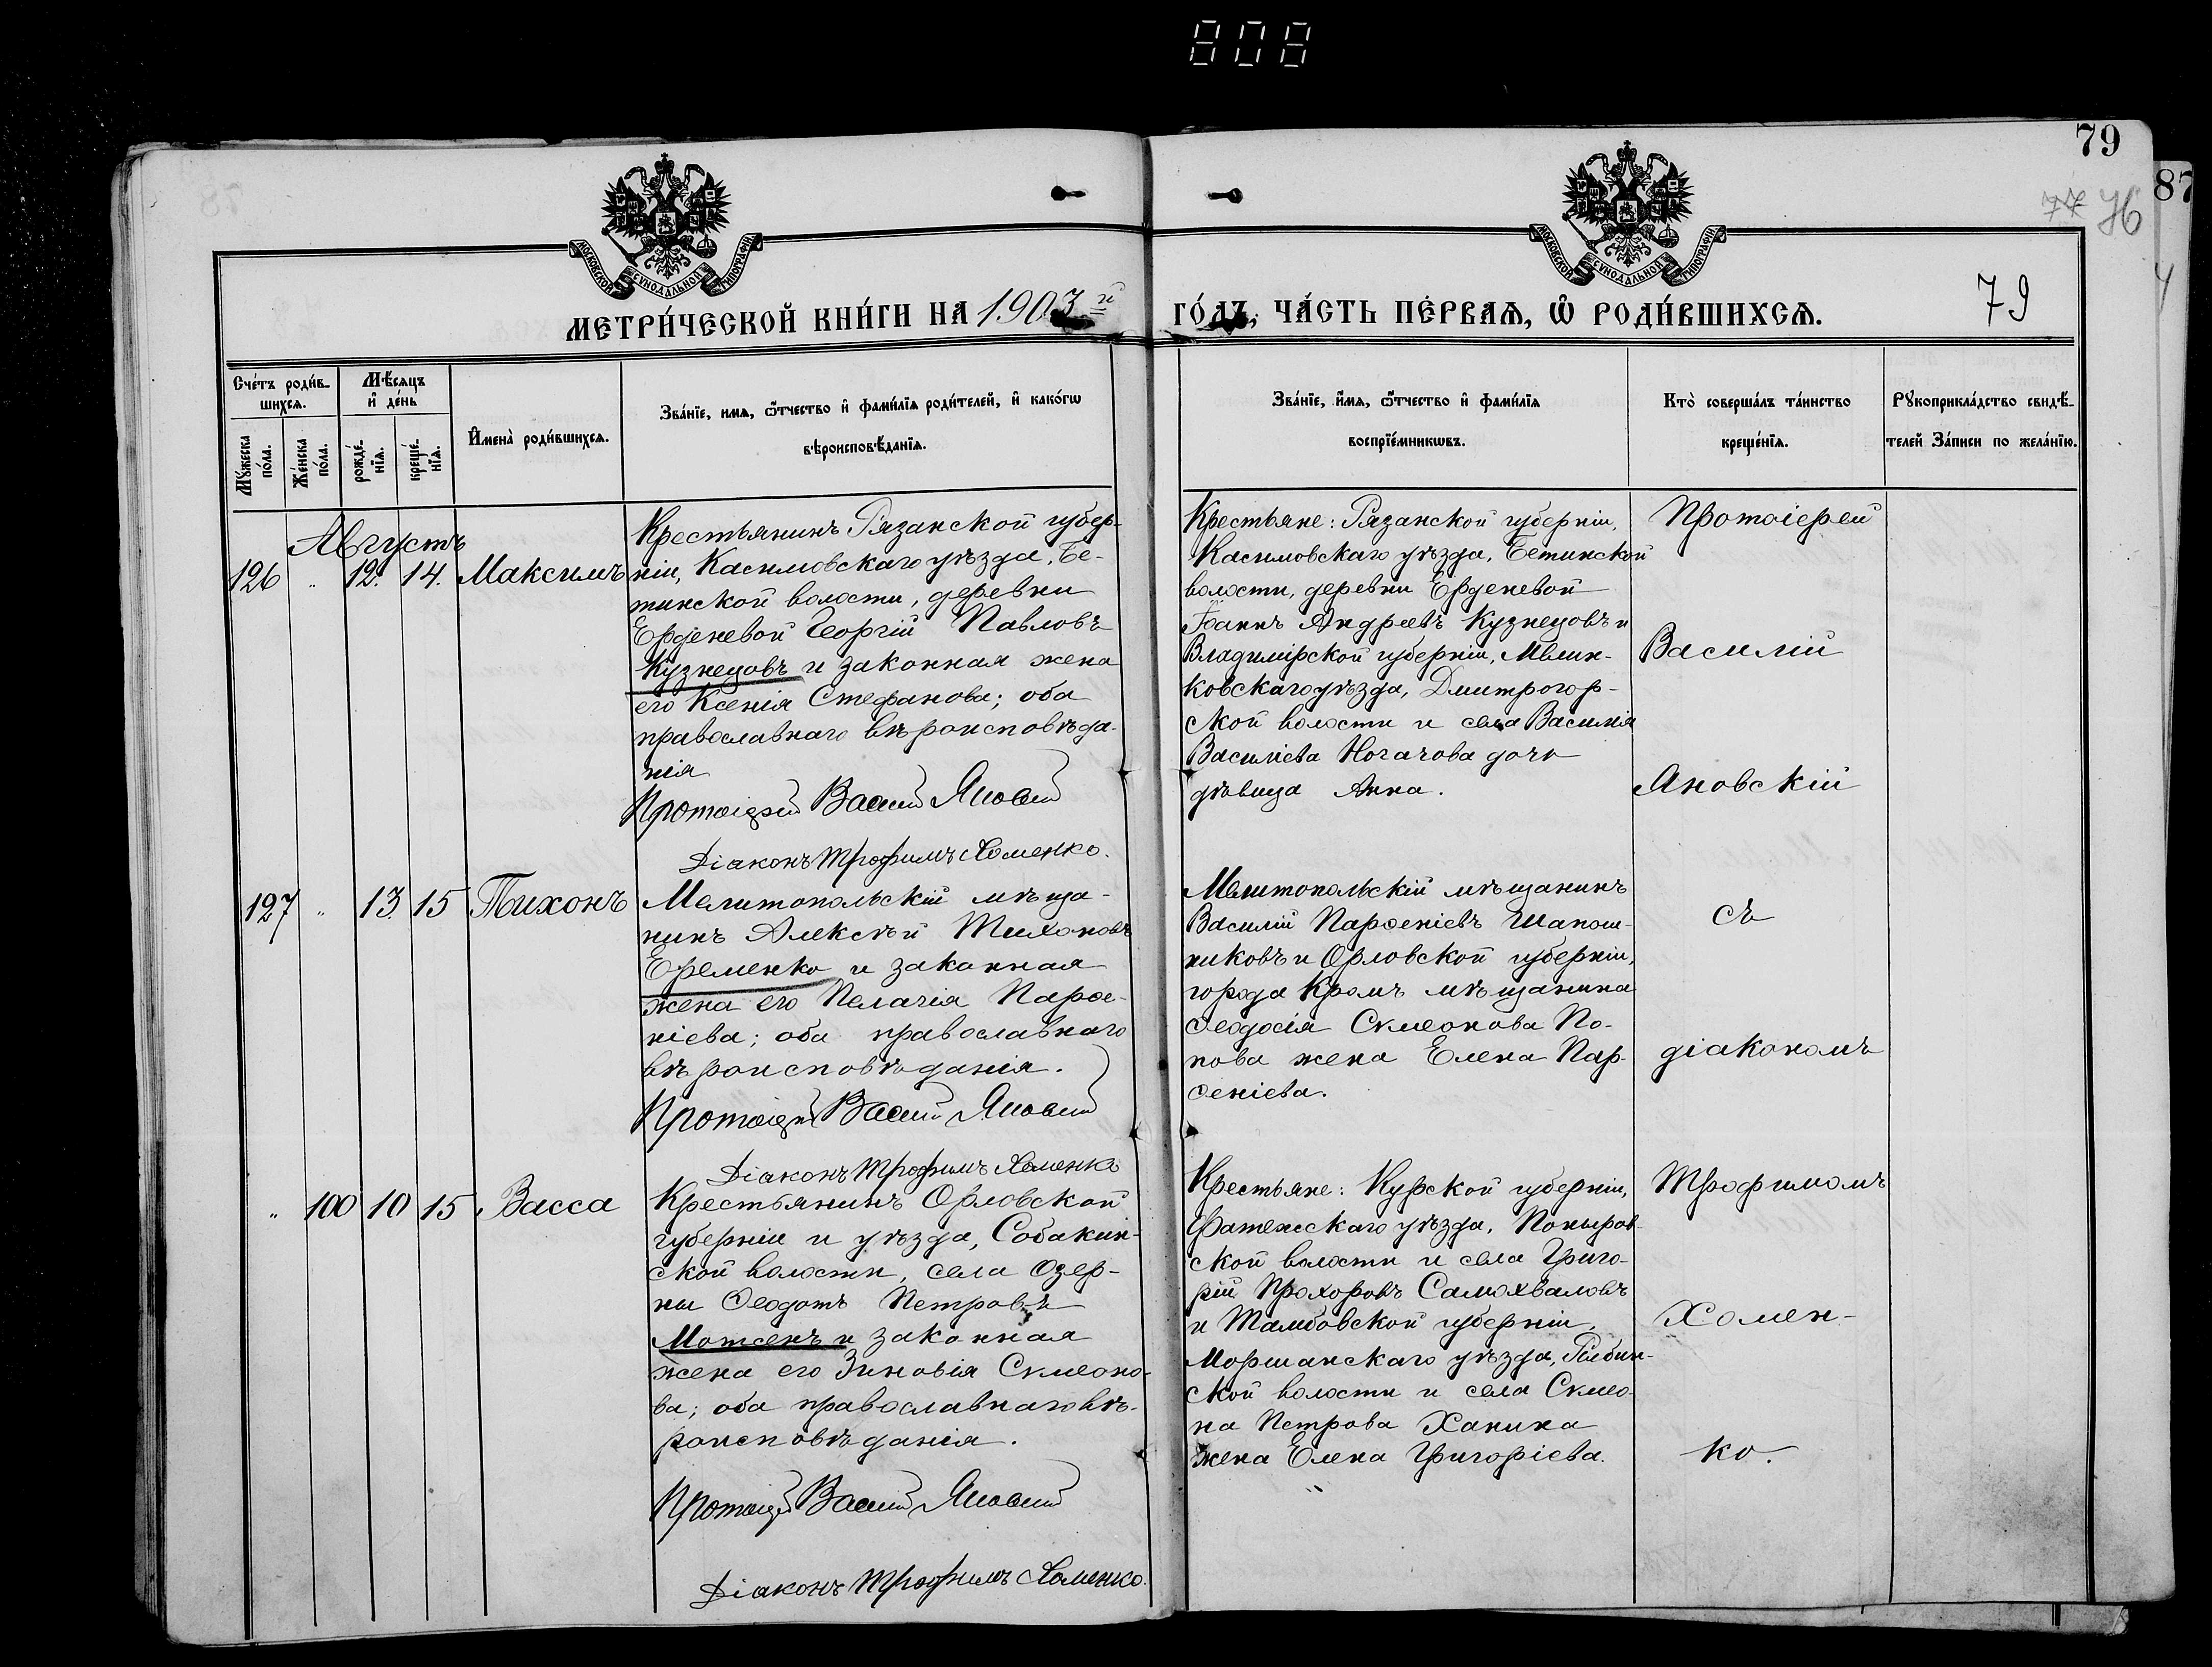 808
79
87
77 76
МОСКОВСКОЙ СѴНОДАЛЬНОЙ ТИПОГРАФІИ
МОСКОВСКОЙ СѴНОДАЛЬНОЙ ТИПОГРАФІИ
МЕТРИ́ЧЕСКОЙ КНИ́ГИ НА 1903й
ГО́ДЪ, ЧА́СТЬ ПЕ́РВАѦ, Ѽ РОДИ́ВШИХСѦ.
79
Сче́тъ роди́в-
шихсѧ.
Мѣ́сяцъ
и҆ де́нь
Мꙋ́жеска
по́ла.
Же́нска
по́ла.
рожде́-
нїѧ.
креще́-
нїѧ.
И҆мена̀ роди́вшихсѧ.
Зва́нїе, имѧ, ѻ҆́тчество и҆ фами́лїѧ роди́телей, и҆ како́гѡ
вѣроисповѣ́данїѧ.
Зва́нїе, и҆́мѧ, ѻ҆́тчество и҆ фами́лїѧ
воспрїе́мникѡвъ.
Кто̀ соверша́лъ та́инство
креще́нїѧ.
Рꙋкоприкла́дство свидѣ́-
телей За́писи по жела́нїю.
Августъ
126 " 12. 14. Максимъ
Крестьянинъ Рязанской губер-
ніи, Касимовскаго уѣзда, Бе-
тинской волости, деревни
Ерденевой Георгій Павловъ
Кузнецовъ и законная жена
его Ксенія Стефанова; оба
православнаго вѣроисповѣда-
нія
Протоіерей Василій Яновскій
Діаконъ Трофимъ Хоменко.
Крестьяне: Рязанской губерніи,
Касимовскаго уѣзда, Бетинской
волости, деревни Ерденевой
Іоаннъ Андреевъ Кузнецовъ и
Владимірской губерніи, Мелин-
ковскаго уѣзда, Дмитрогор-
ской волости и села Василія
Василіева Ногачова дочь
дѣвица Анна.
Протоіерей
Василій
Яновскій
127 " 13 15 Тихонъ
Мелитопольскій мѣща-
нинъ Алексѣй Тихоновъ
Еременко и законная
жена его Пелагія Парѳе-
ніева; оба православнаго
вѣроисповѣданія.
Протоіерей Василій Яновскій
Діаконъ Трофимъ Хоменко
Мелитопольскій мѣщанинъ
Василій Парѳеніевъ Шапош-
никовъ и Орловской губерніи,
города Кромъ мѣщанина
Ѳеодосія Симеонова По-
пова жена Елена Пар-
ѳеніева.
съ
діакономъ
" 100 10 15 Васса
Крестьянинъ Орловской
губерніи и уѣзда, Собакин-
ской волости, села Озер-
ны Ѳеодотъ Петровъ
Мотсенъ и законная
жена его Зиновія Симеоно-
ва; оба православнаго вѣ-
роисповѣданія.
Протоіерей Василій Яновскій
Діаконъ Трофимъ Хоменко.
Крестьяне: Курской губерніи,
Фатежскаго уѣзда, Поныров-
ской волости и села Григо-
рій Прохоровъ Самохваловъ
и Тамбовской губерніи,
Моршанскаго уѣзда, Рыбин-
ской волости и села Симео-
на Петрова Ханина
жена Елена Григоріева.
Трофимомъ
Хомен-
ко.